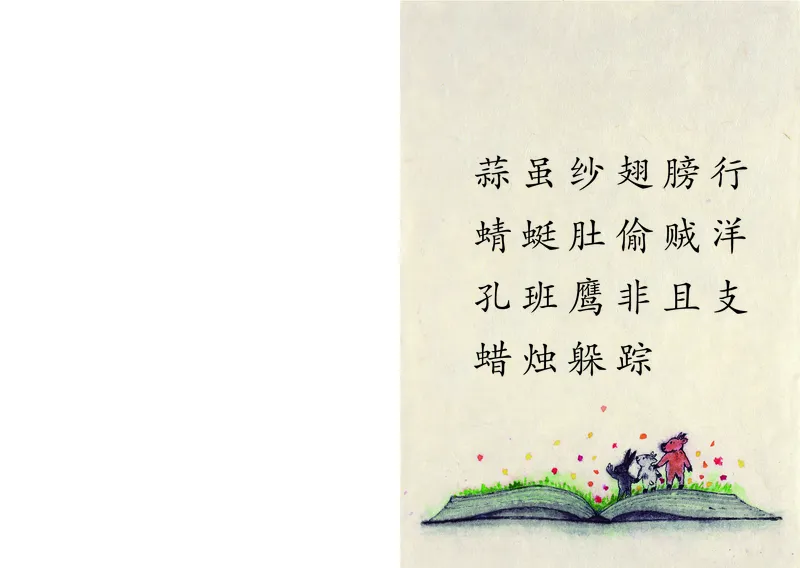 蒜虽纱翅膀行
蜻蜓肚偷贼洋
孔班鹰非且支
蜡烛躲踪